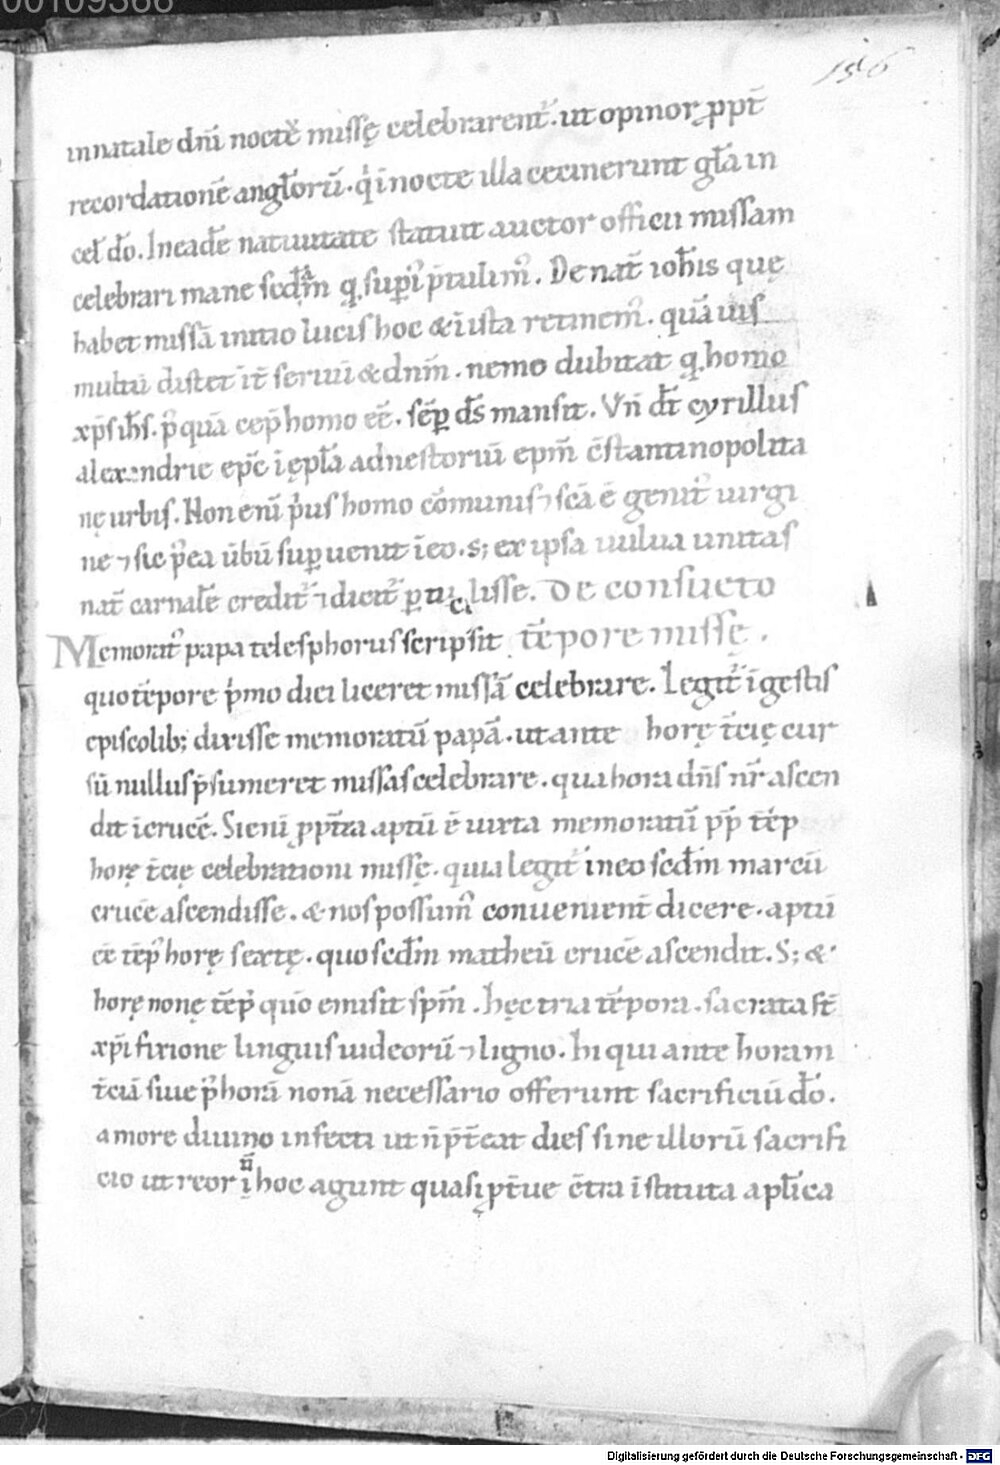 00109388
156
in natale dñi nocte missę celebrarent᷑. ut opinor ꝓpt̄
recordationē anglorū. q̇ ī nocte illa cecinerunt gl̄a in
cel̄ do̅. In eadē natiuitate statuit auctor officii missam
celebrari mane scdm̄ ꝗ sup̲i᷑ p̄tulim᷒. De nat̄ ioh̅is quę
habet missā initio lucis hoc & ī ista retinem᷒. quāuis
multū distet it̄ seruū & dnm̄. nemo dubitat ꝗ homo
xp̄s ih̅s. p᷒quā cep̄ homo eē. sēp ds̄ mansit. Vn̄ dt̄ cyrillus
alexandrie epc̄ ī ępl̄a ad nestoriū epm̄ c̄stantinopolita
nę urbis. Non enī p᷒us homo cōmunis ⁊ sc̄a ē genit᷒ uirgi
ne ⁊ sic p̄ea ūbū sup̲uenit ī eo. s; ex ipsa uulua unitas
nat̄ carnalē credit᷑ ⁊ dicit᷑ ꝑtulisse. De consueto
Memorat᷒ papa telesphorus scripsit tēpore missę.
quo tēpore p᷒mo diei liceret missā celebrare. Legit᷑ ī gestis
episcolib; dixisse memoratū papā. ut ante horę t̄cię cur
sū nullus p̄sumeret missas celebrare. qua hora dn̄s nr̄ ascen
dit ī crucē. Sic enī ꝓpt̄ea aptū ē iuxta memoratū pp̄ tēp
horę t̄cię celebrationi missę. quia legit᷑ in eo scdm̄ marcū
crucē ascendisse. & nos possum᷒ conuenient̄ dicere. aptū
eē tēp᷒ horę sextę. quo scdm̄ matheū crucē ascendit. S; &
horę nonę tēp᷒ quo emisit spm̄. hęc tria tēpora. sacrata st̄
xp̄i fixione linguis iudeorū ⁊ ligno. hi qui ante horam
t̄ciā siue p᷒ horā nonā necessario offerunt sacrificiū do̅.
amore diuino infecti ut n̄ p̄t̄eat dies sine illorū sacrifi
cio ut reor n̄ ī hoc agunt quasi ꝓt̄ue c̄tra īstituta apl̄ica
Digitalisierung gefördert durch die Deutsche Forschungsgemeinschaft - DFG